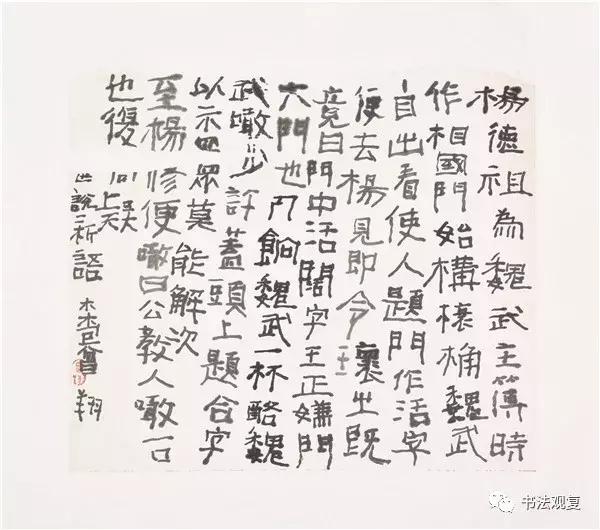 楊德祖為魏武主簿時
作相國門始構榱桷魏武
自出看使人題門作活字
便去楊見即令壞之既
竟曰門中活闊字王正嫌門
大門也人餉魏武一杯酪魏
武噉少許蓋頭上題合字
以示眾眾莫能解次
至楊修便噉曰公教人噉一口
也復何疑
世說新語 曾翔
书法观复